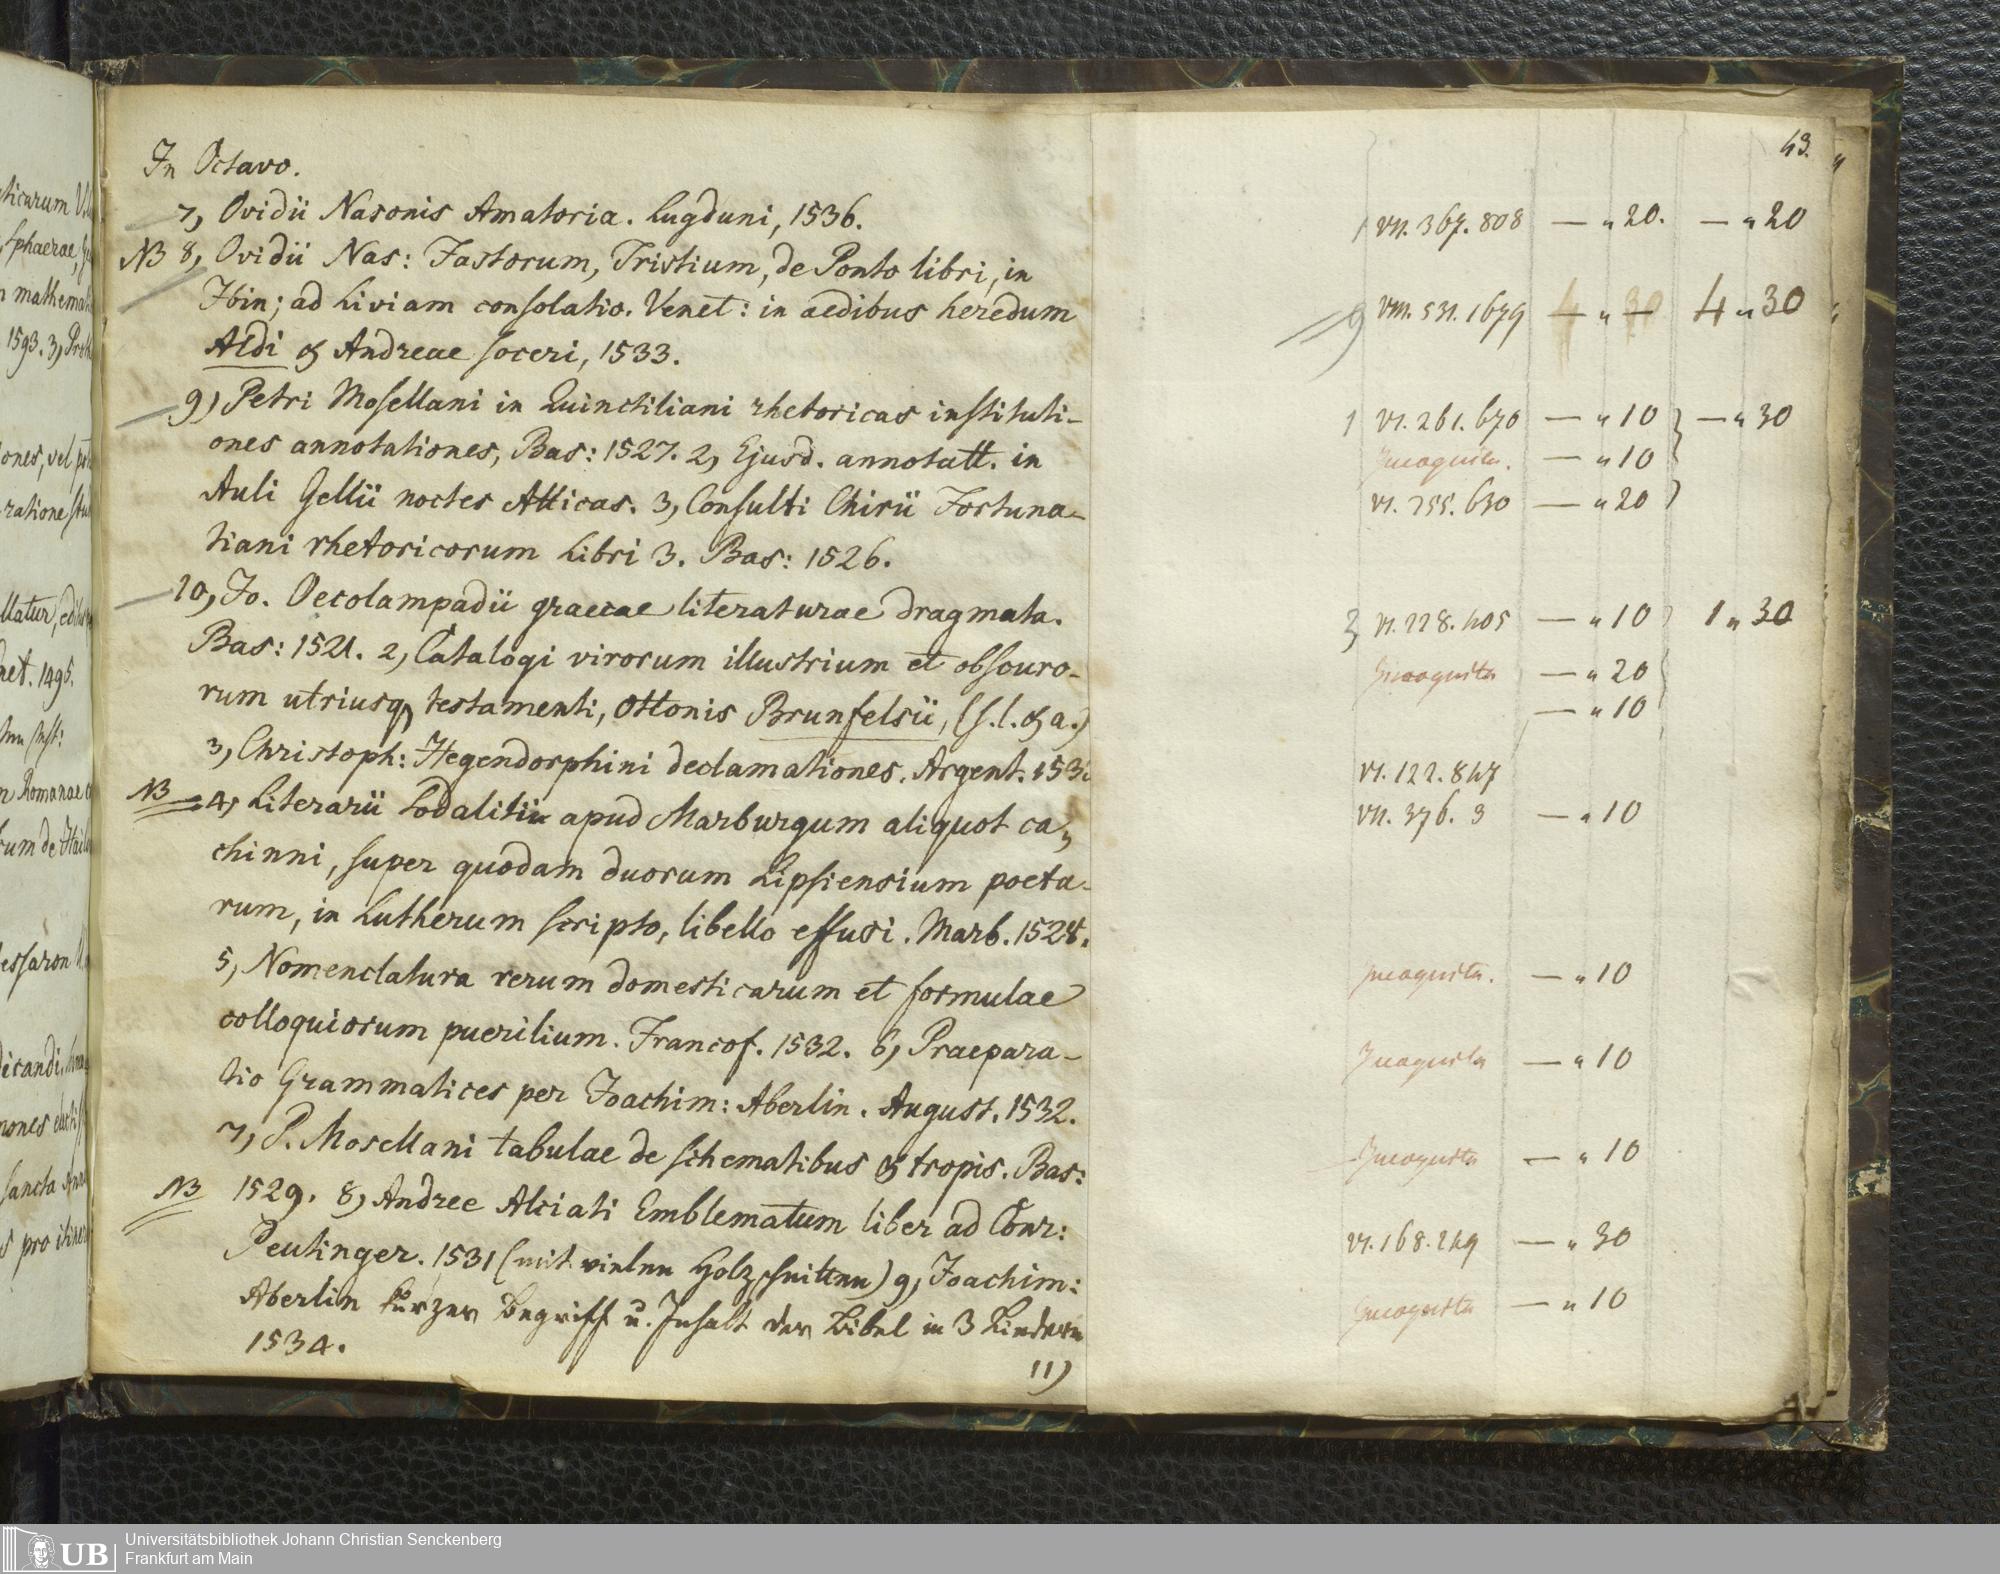 In Octavo.
7, Ovidii Nasonis Amatoria. Lugduni, 1536.
NB 8, Ovidii Nas: Fastorum, Tristium, de Ponto libri, in
Ibin; ad Liviam consolatio. Venet: in aedibus heredum
Aldi & Andreae soceri, 1533.
9) Petri Mosellani in Quinctiliani rhetoricas instituti-
ones annotationes, Bas: 1527. 2, Ejusd. annotatt. in
Auli Gellii noctes Atticas. 3, Consulti Chirii Fortuna-
tiani rhetoricorum Libri 3. Bas: 1526.
10, Jo. Oecolampadii graecae literaturae dragmata.
Bas: 1521. 2, Catalogi virorum illustrium et obscuro-
rum utriusq testamenti, Ottonis Brunfelsii, (s.l.&a.)
3, Christoph: Hegendorphini declamationes. Argent.
NB 4, Literarii Sodalitii apud Marburgum aliquot ca-
chinni, super quodam duorum Lipsiensium poeta-
rum, in Lutherum scripto, libello effusi. Marb. 1528.
5, Nomenclatura rerum domesticarum et formulae
colloquiorum puerilium. Francof. 1532. 6, Praepara-
tio Grammatices per Joachim: Aberlin. August. 1532.
7, P. Mosellani tabulae de schematibus & tropis. Bas:
NB 1529. 8, Andree Alciati Emblematum liber ad Conr:
Peutinger. 1531 (mit vielen Holzschnitten) 9, Joachim:
Aberlin kurzer Begriff u. Inhalt der Bibel in 3 Liedern
1534.
11)
43.
1 VII. 367. 808 — " 20. — " 20
9 VIII. 531. 1679 4 " 30
1 VI. 261. 670 — " 10 — " 30
Incognita. — " 10
VI. 255. 630 — " 20
3 VI. 228. 405 — " 10 1 " 30
Incognita — " 20
— " 10
VI. 122. 847
VII. 376. 3 — " 10
Incognita. — " 10
Incognita — " 10
Incognita — " 10
VI. 168. 249 — " 30
Incognita — " 10
UB
Universitätsbibliothek Johann Christian Senckenberg
Frankfurt am Main